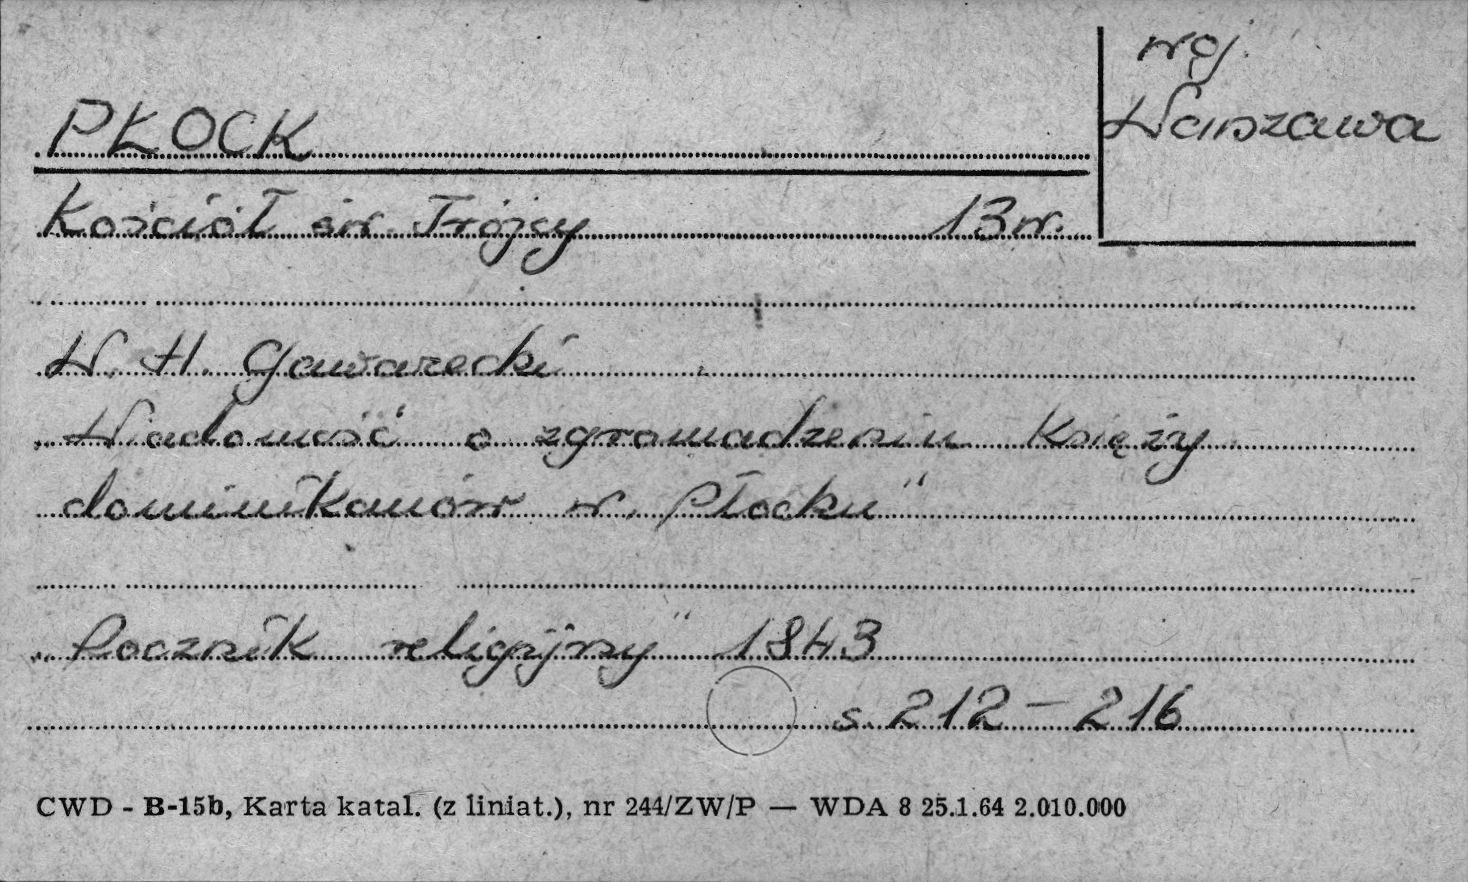 woj.
Warszawa
PŁOCK
Kościół św. Trójcy 13 w.
W. H. Gawarecki
„Wiadomość o zgromadzeniu Księży
dominikanów w Płocku"
„Rocznik religijny" 1843
s. 212 - 216
CWD - B-15b, Karta katal. (z liniat.), nr 244/ZW/P — WDA 8 25.1.64 2.010.000